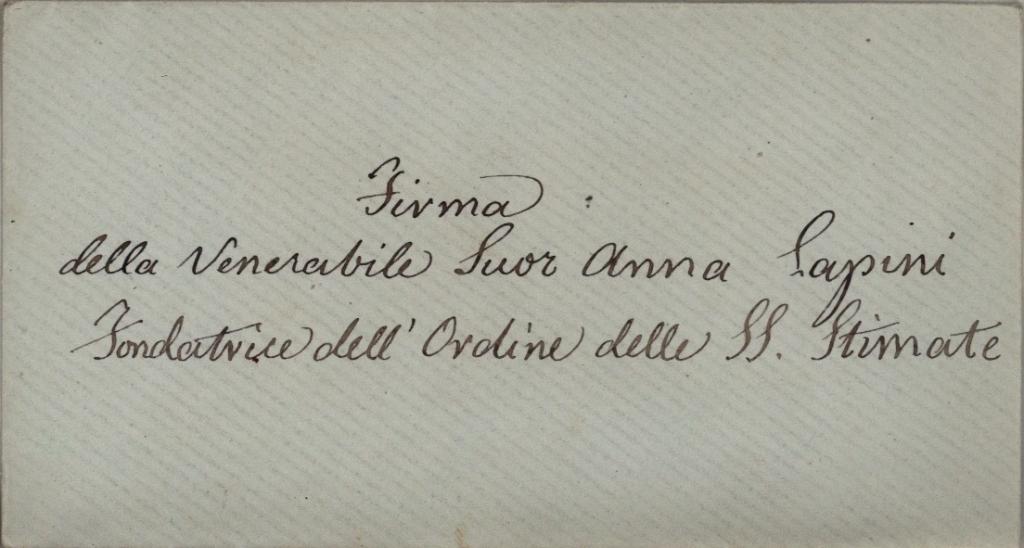 Firma
della Venerabile Suor Anna Lapini
Fondatrice dell' Ordine delle SS. Stimate